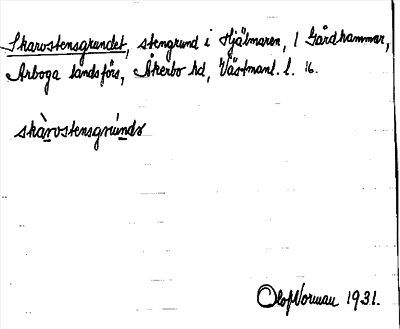 Skarvstensgrundet, stengrund i Hjälmaren, l Gårdhammar,
Arboga landsförs, Åkerbo hd, Västmanl. l. 16.
skàrvstensgrúndə
Olof Norman 1931.